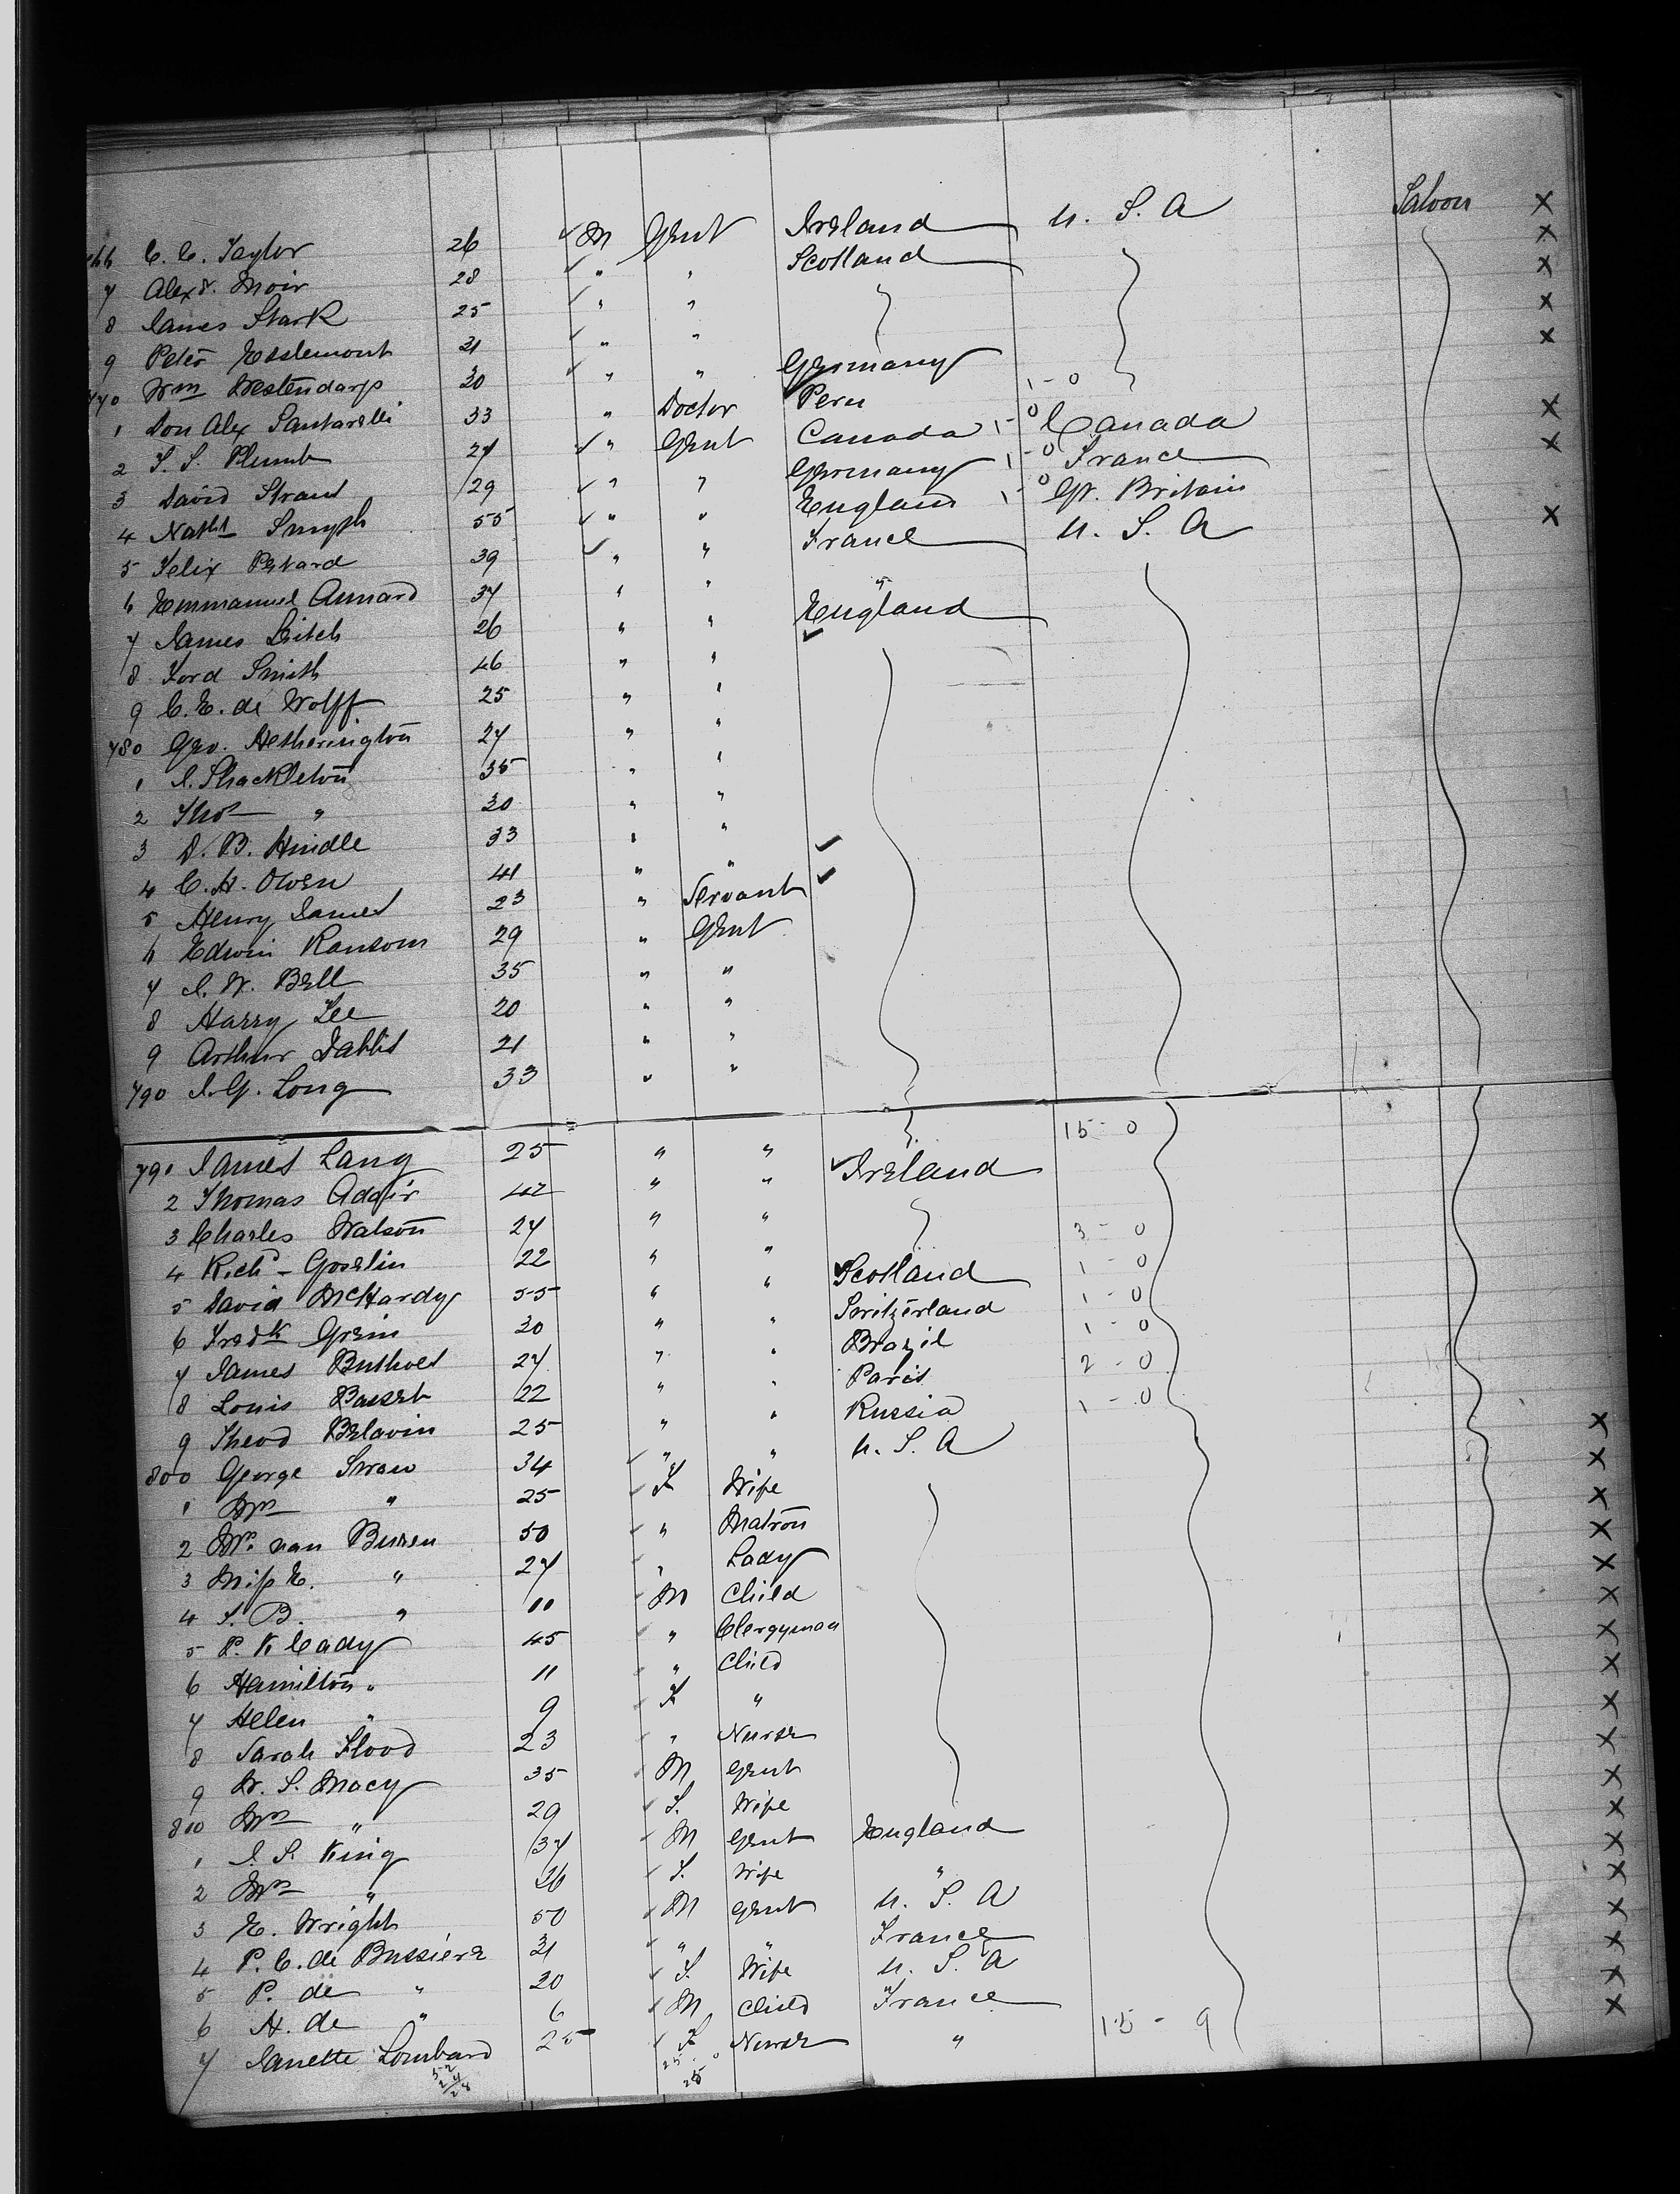 C. C. Taylor 26 ✓ M Gent Ireland U. S. A Saloon X
7 Alexr. Moir 28 ✓ " " Scotland X
8 James Stark 25 ✓ " " X
9 Peter Esslemont 21 ✓ " " X
770 Wm Westendarp 30 ✓ " " Germany X
1 Don Alex Santarelli 33 " Doctor Peru 1-0
2 T. S. Plumb 27 ✓ " Gent Canada 1-0 Canada X
3 David Straus 29 ✓ " " Germany 1-0 France X
4 Nathl Smyth 55 ✓ " " England 1-0 Gt. Britain
5 Felix Petard 39 ✓ " " France U. S. A X
6 Emmanuel Aunard 37 " " "
7 James Leitch 26 " " England
8 Ford Smith 46 " "
9 C. E. de Wolff 25 " "
780 Geo. Hetherington 27 " "
1 J. Shackleton 35 " "
2 Thos " 30 " "
3 D. B. Hindle 33 " "
4 C. H. Owen 41 " " ✓
5 Henry James 23 " Servant ✓
6 Edwin Ransom 29 " Gent
7 J. W. Bell 35 " "
8 Harry Lee 20 " "
9 Arthur 21 " "
790 J. G. Long 33 " "
791 James Lang 25 " " 15-0
2 Thomas Adair 42 " " ✓ Ireland
3 Charles Watson 27 " "
4 Richd Gosselin 22 " " 3-0
5 David McHardy 55 " " ✓ Scotland 1-0
6 Fredk Grein 30 " " Switzerland 1-0
7 James 27 " " Brazil 1-0
8 Louis Basset 22 " " Paris 2-0
9 Theod Belavin 25 " " Russia 1-0
800 George Swan 34 ✓ " " U. S. A X
1 Mrs " 25 ✓ F Wife X
2 Mrs. van Buren 50 ✓ " Matron X
3 Miss E. " 27 ✓ " Lady X
4 S. B. " 11 ✓ M Child X
5 P. K Cady 45 ✓ " Clergyman X
6 Hamilton " 11 ✓ " Child X
7 Helen " 9 ✓ F " X
8 Sarah Flood 23 ✓ " Nurse X
9 W. S. Macy 35 ✓ M Gent X
810 Mrs " 29 ✓ F. Wife X
1 J. S. King 37 ✓ M Gent England X
2 Mrs " 26 ✓ F. Wife " X
3 E. Wright 50 ✓ M Gent U. S. A X
4 P. C. de Bussiere 31 ✓ " " France X
5 P. de " 20 ✓ F. Wife U. S. A X
6 H. de " 6 ✓ M Child France X
7 Janette Lombard 25 ✓ F Nurse " 15-9 X